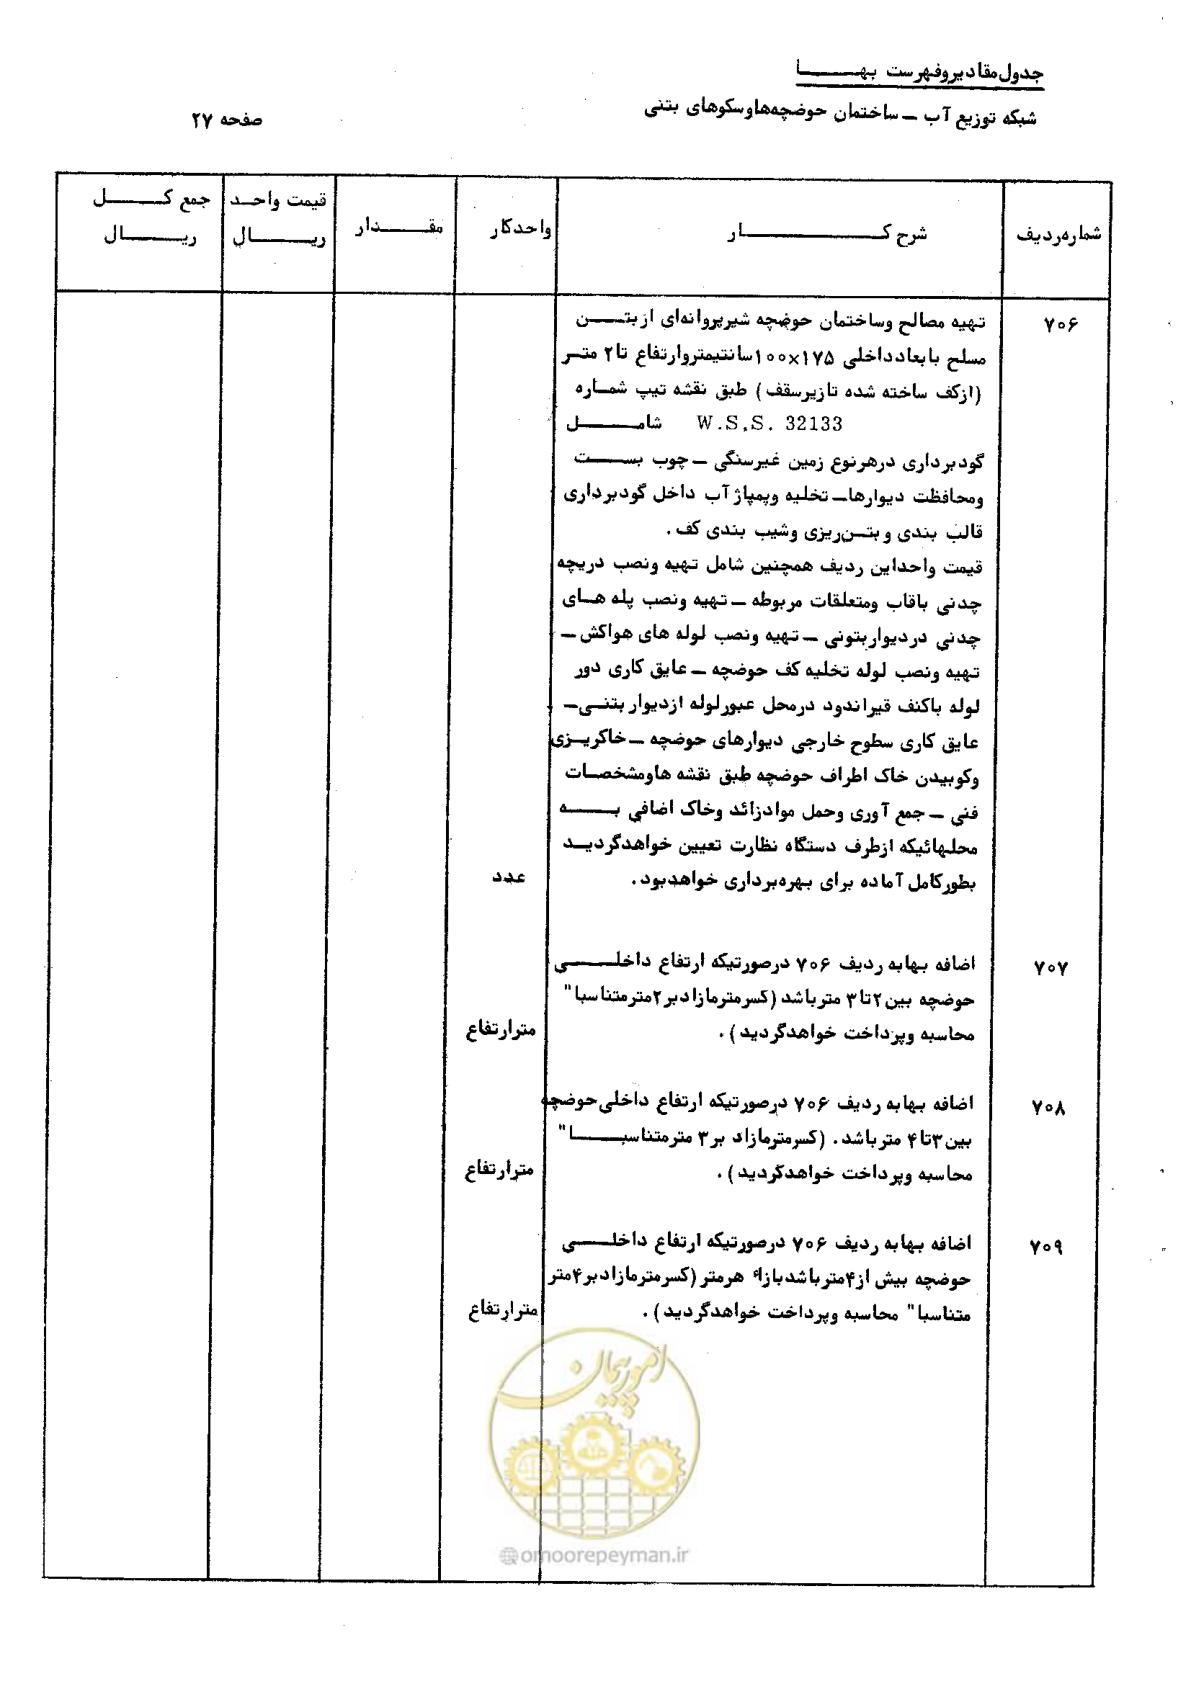 جدول مقادیر و فهرست بها
شبکه توزیع آب – ساختمان حوضچه‌ها و سکوهای بتنی
صفحه ۲۷
شماره ردیف
شرح کار
واحد کار
مقدار
قیمت واحد ریال
جمع کل ریال
۷۰۶
تهیه مصالح و ساختمان حوضچه شیرپروانه‌ای از بتن
مسلح با بعاد داخلی ۱۷۵×۱۰۰ سانتیمتر و ارتفاع تا ۲ متر
(از کف ساخته شده تا زیر سقف) طبق نقشه تیپ شماره
W.S.S. 32133 شامل
گودبرداری در هر نوع زمین غیرسنگی – چوب بست
و محافظت دیوارها – تخلیه و پمپاژ آب داخل گودبرداری
قالب بندی و بتن‌ریزی و شیب بندی کف.
قیمت واحد این ردیف همچنین شامل تهیه و نصب دریچه
چدنی با قاب و متعلقات مربوطه – تهیه و نصب پله های
چدنی در دیوار بتونی – تهیه و نصب لوله های هواکش –
تهیه و نصب لوله تخلیه کف حوضچه – عایق کاری دور
لوله با کنف قیراندود در محل عبور لوله از دیوار بتنی –
عایق کاری سطوح خارجی دیوارهای حوضچه – خاکریزی
و کوبیدن خاک اطراف حوضچه طبق نقشه ها و مشخصات
فنی – جمع آوری و حمل مواد زائد و خاک اضافی به
محلهائیکه از طرف دستگاه نظارت تعیین خواهد گردید
بطور کامل آماده برای بهره‌برداری خواهد بود.
عدد
۷۰۷
اضافه بها به ردیف ۷۰۶ در صورتیکه ارتفاع داخلی
حوضچه بین ۲ تا ۳ متر باشد (کسر متر مازاد بر ۲ متر متناسبا"
محاسبه و پرداخت خواهد گردید).
متر ارتفاع
۷۰۸
اضافه بها به ردیف ۷۰۶ در صورتیکه ارتفاع داخلی حوضچه
بین ۳ تا ۴ متر باشد. (کسر متر مازاد بر ۳ متر متناسبا"
محاسبه و پرداخت خواهد گردید).
متر ارتفاع
۷۰۹
اضافه بها به ردیف ۷۰۶ در صورتیکه ارتفاع داخلی
حوضچه بیش از ۴ متر باشد بازاء هر متر (کسر متر مازاد بر ۴ متر
متناسبا" محاسبه و پرداخت خواهد گردید).
متر ارتفاع
امور پیمان
@omoorepeyman.ir